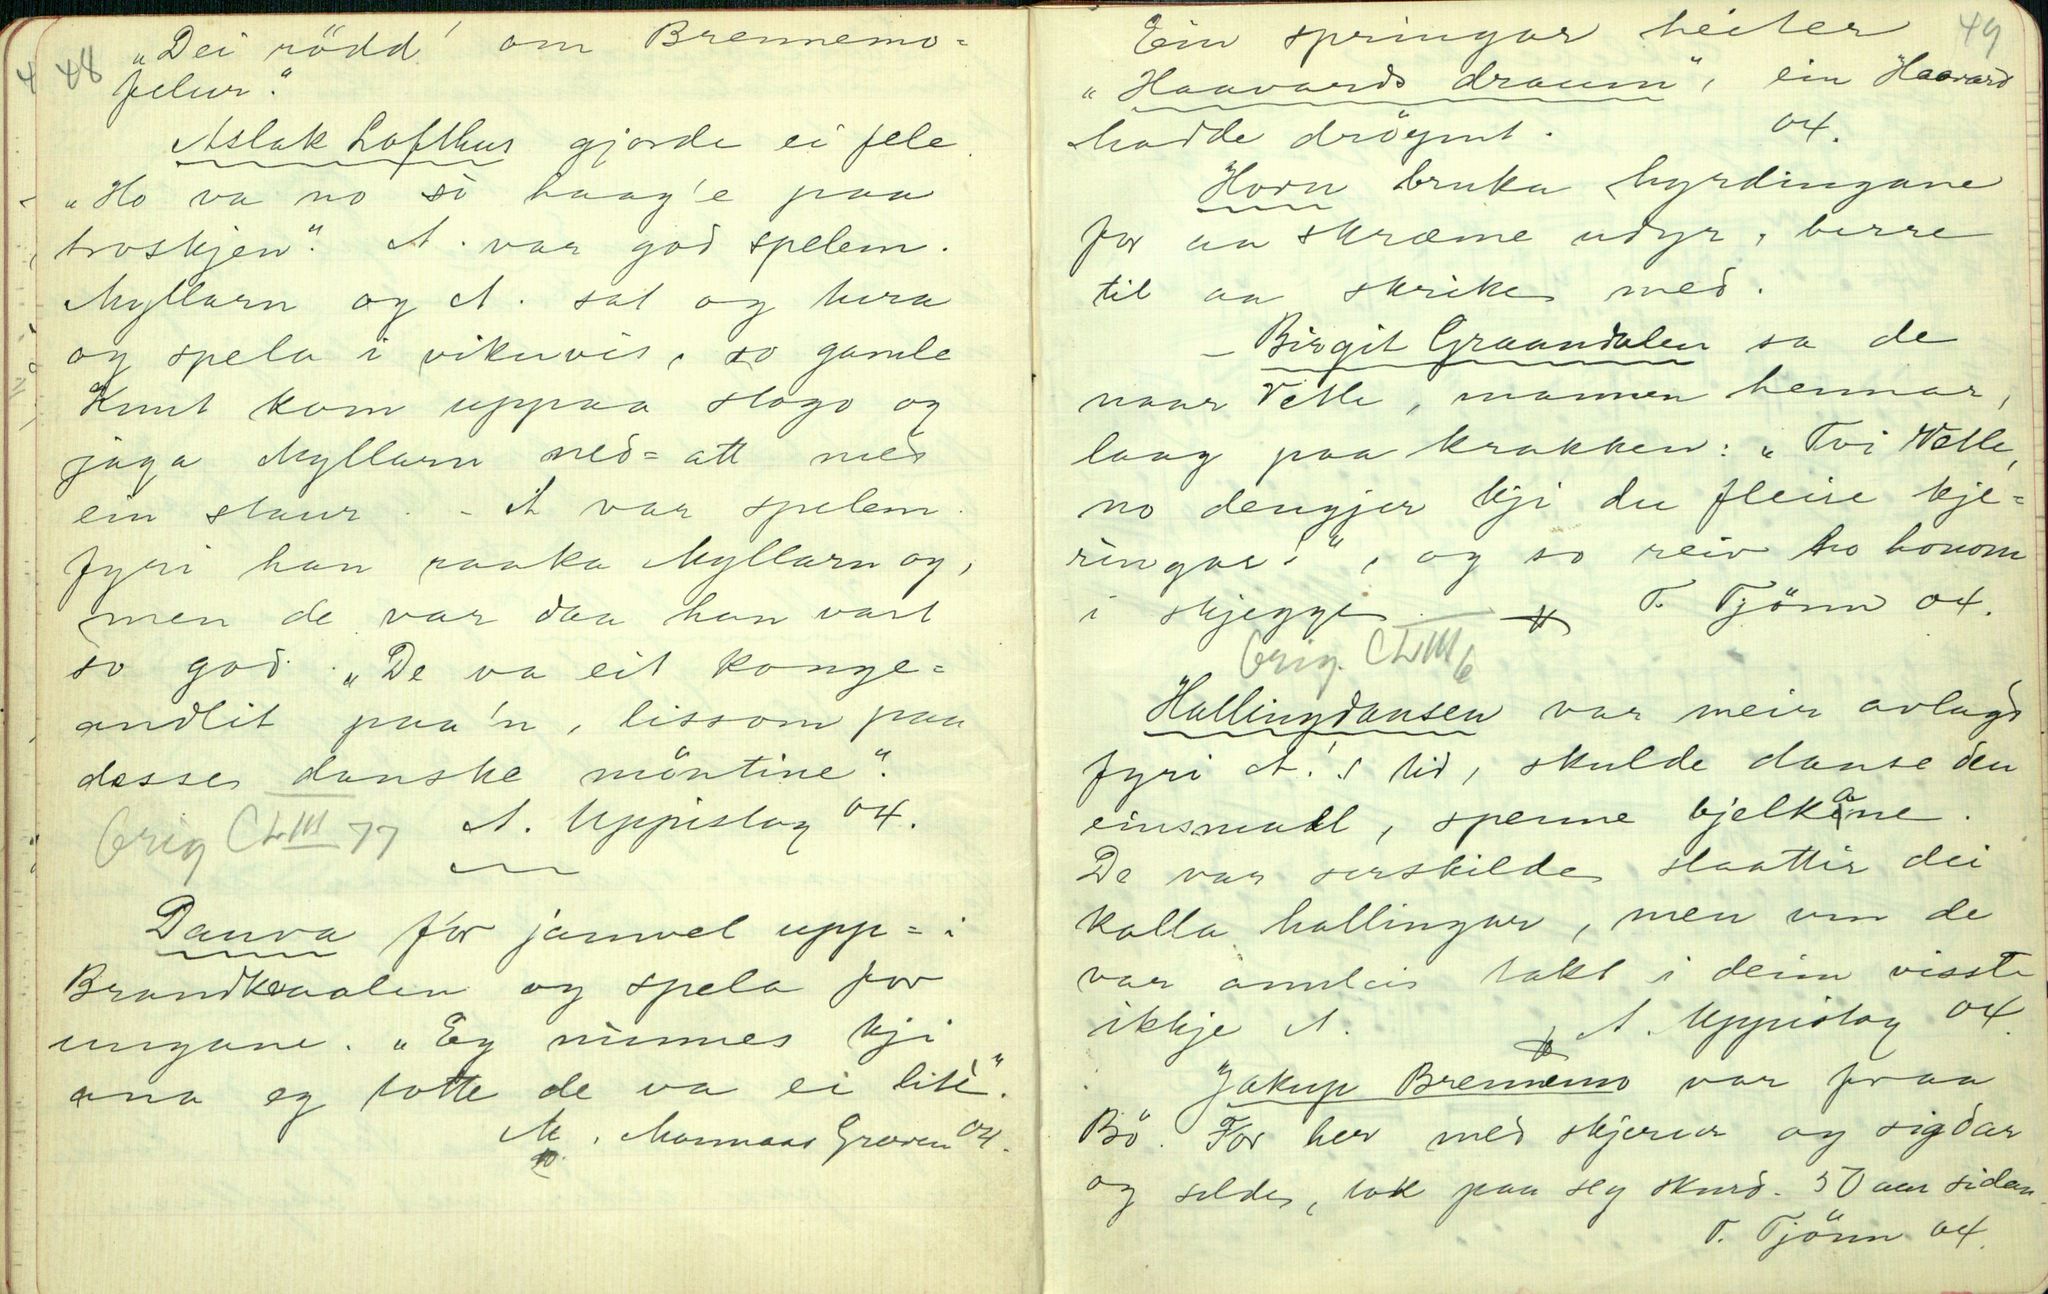 48
„Dei rödd' om Brennemo-
felur."
Aslak Lofthus gjorde ei fele.
„Ho va no så haag'e paa
troskjen". A. var god spelem.
Myllarn og A. sat og tura
og spela i vikuvis, so gamle
Knut kom uppaa slago og
jaga Myllarn ned=att med
ein staur. - A var spelem.
fyri han raaka Myllarn og,
men de var daa han vart
so god. „De va eit konge=
andlit paa'n, lissom paa
desse danske möntine".
Orig CLIII 77 A. Uppistog 04.
Danva for jamvel upp=i
Brandkaalen og spela for
ungane. „Eg minnes kji
ana eg totte de va ei lité".
M. Mommaas Graven 04.
49
Ein springar heiter
„Haavards draum", ein Haavard
hadde dröymt. 04.
Horn bruka hyrdingane
for aa skræme udyr, berre
til aa skrike med.
- Birgit Graandalen sa de
naar Vetle, mannen hennar,
laag paa krakken: „Tvi Vetle,
no dengjer kji du fleire kje=
ringar!", og so reiv ho honom
i skjegge. T. Tjönn 04.
Orig. CLIII 6
Hallingdansen var meir avlagd
fyri A.'s tid, skulde danse den
einsmall, spenne bjelkane.
De var serskilde slaattir dei
kalla hallingar, men um de
var annleis takt i deim visste
ikkje A. A. Uppistog 04.
Jakup Brennemo var fraa
Bö. For her med skjerur og sigdar
og selde, tok paa seg skurd. 50 aar sidan.
T. Tjönn 04.